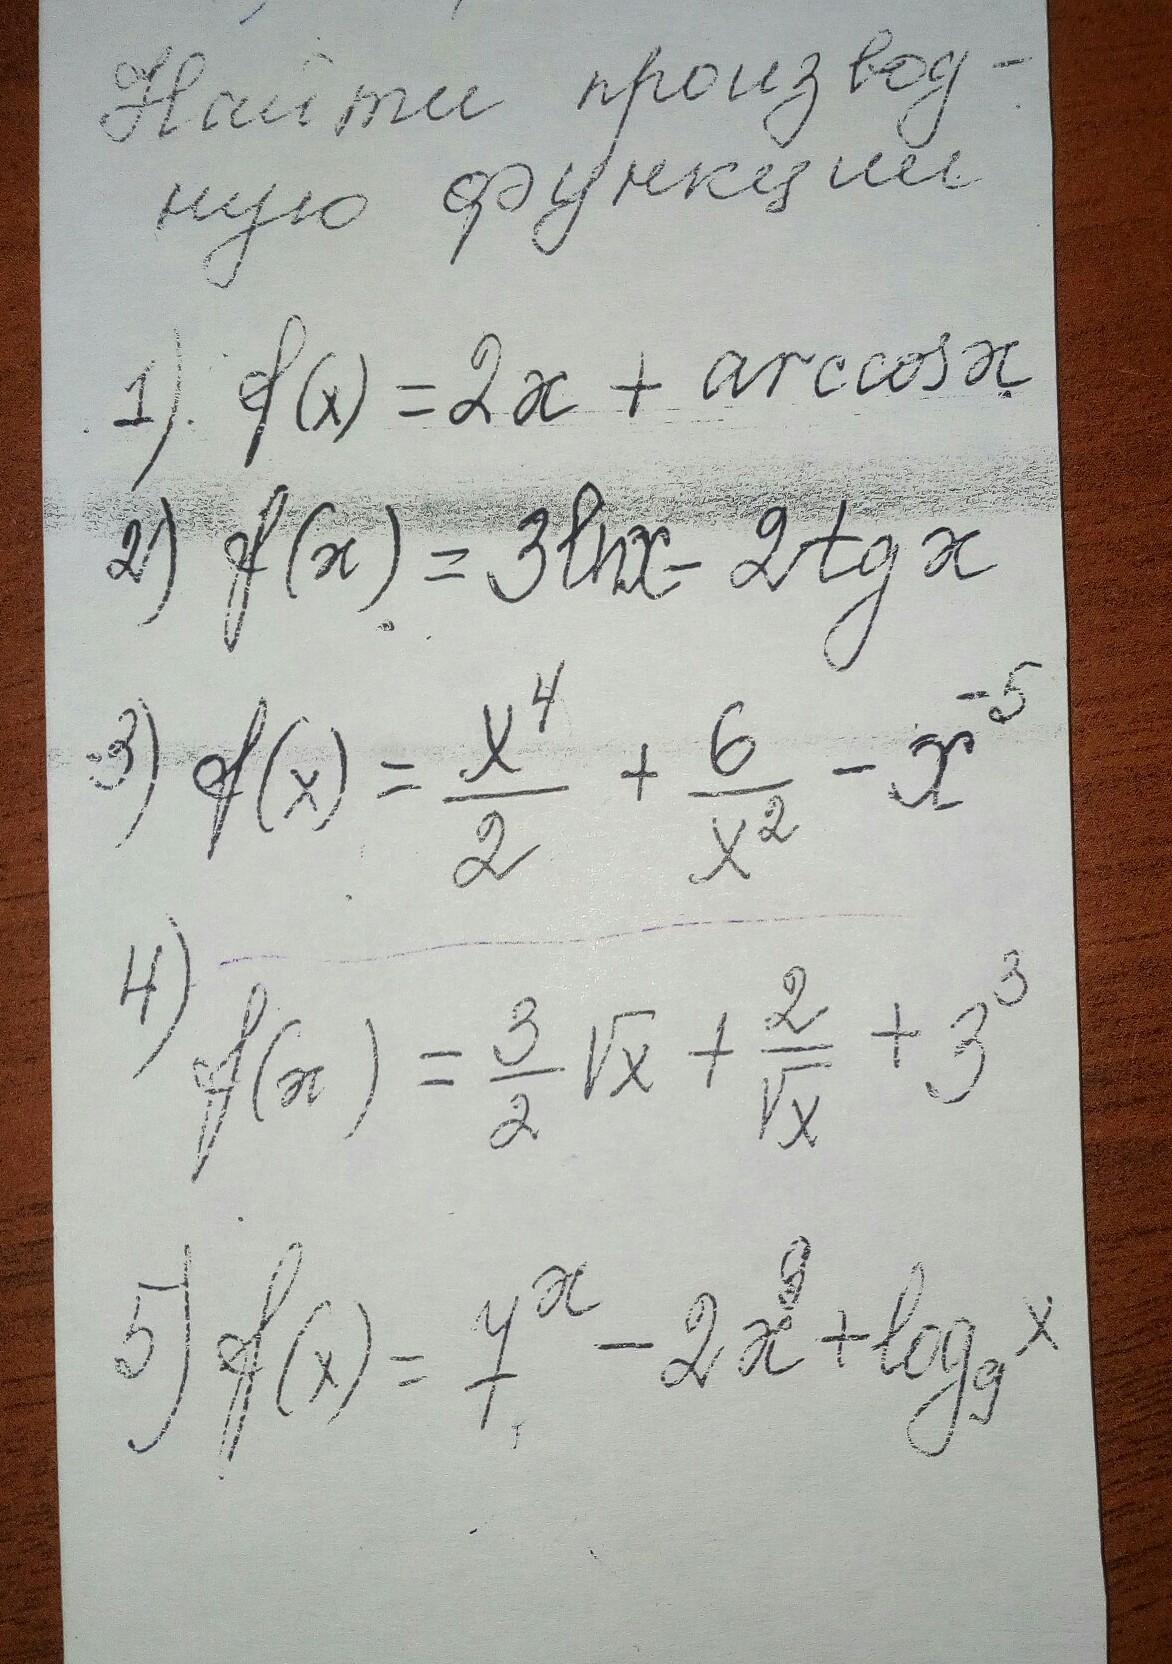 Найти производ-
ную функции
1). f(x) = 2x + arccosx
2) f(x) = 3lnx - 2tgx
3) f(x) = x⁴/2 + 6/x² - x⁻⁵
4) f(x) = 3/2 √x + 2/√x + 3³
5) f(x) = 7ˣ - 2x⁹ + log₉ x